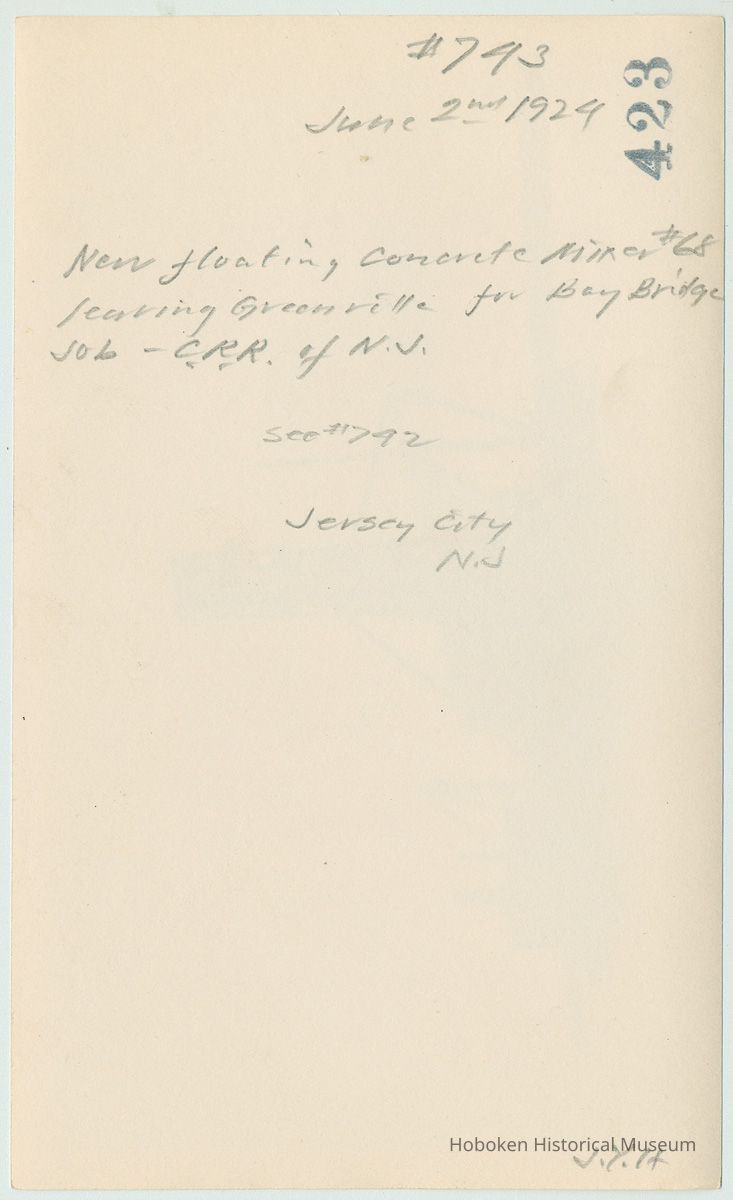 #793
423
June 2nd 1924
New floating Concrete Mixer #68
leaving Greenville for Bay Bridge
Job - C.R.R. of N.J.
see #792
Jersey City
N.J
Hoboken Historical Museum
J.Y.H